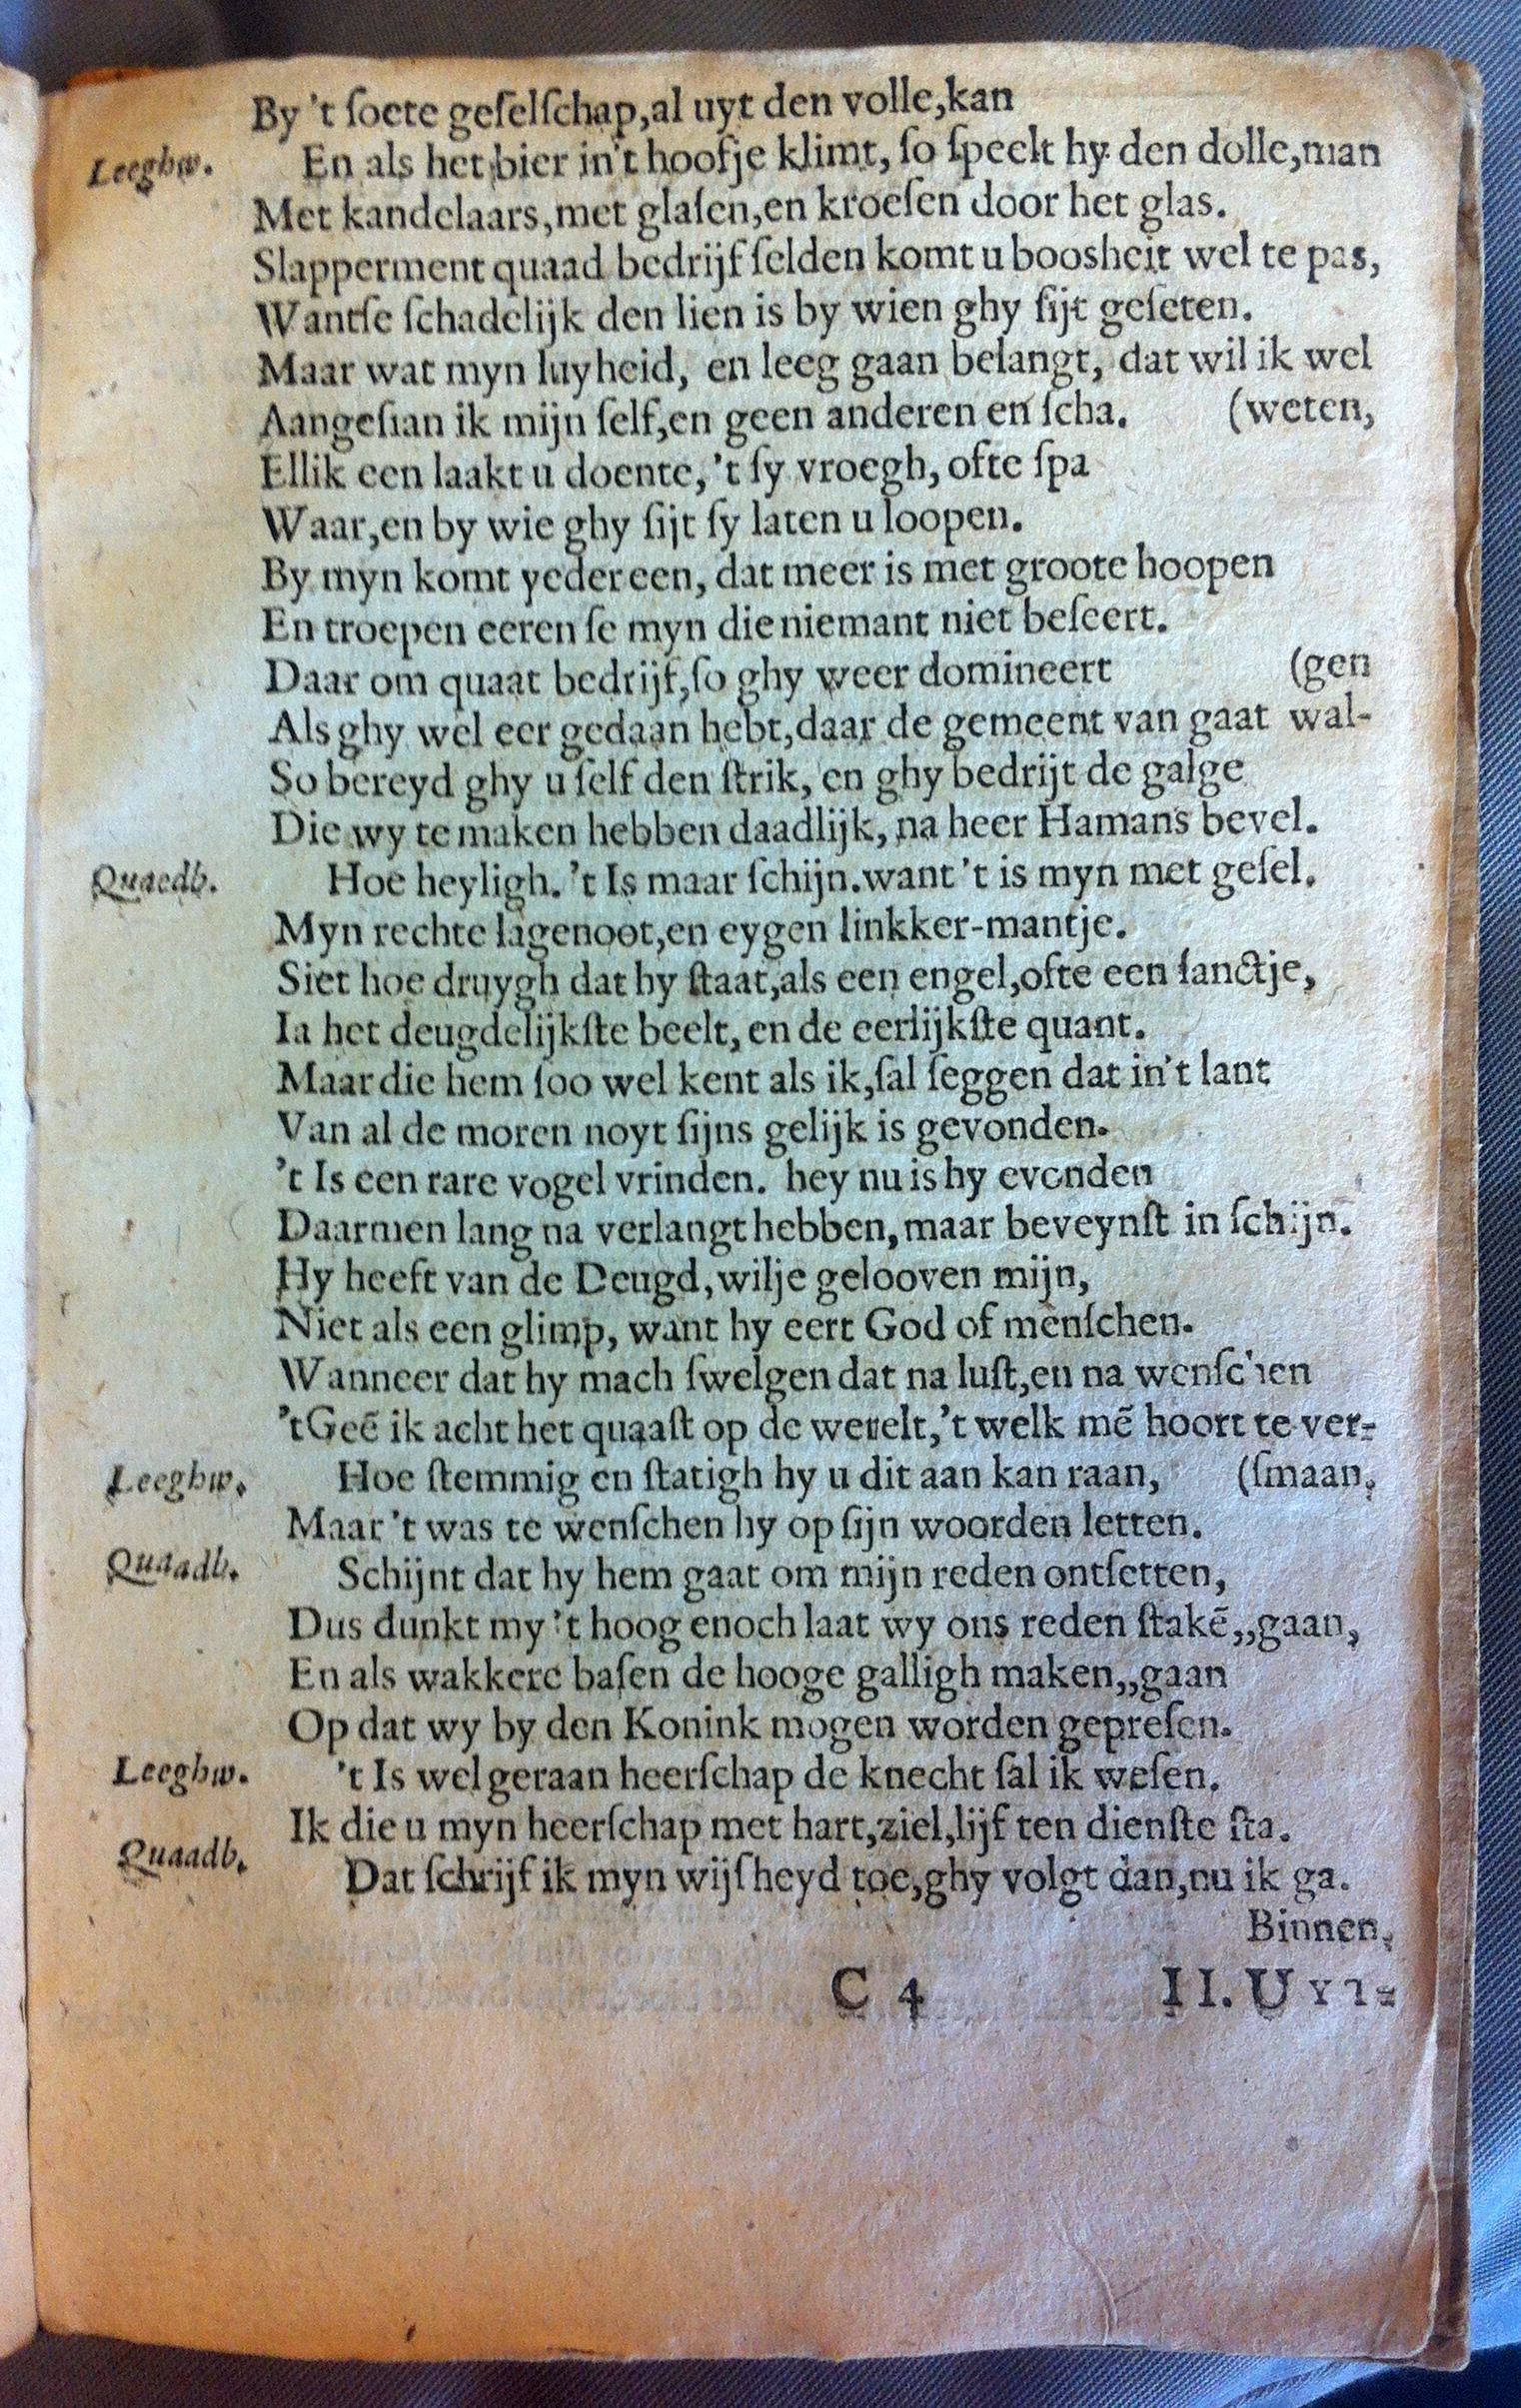 By 't ſoete geſelſchap,al uyt den volle,kan
Leeghw. En als het bier in't hoofje klimt, ſo ſpeelt hy den dolle,man
Met kandelaars,met glaſen,en kroeſen door het glas.
Slapperment quaad bedrijf ſelden komt u boosheit wel te pas,
Wantſe ſchadelijk den lien is by wien ghy ſijt geſeten.
Maar wat myn luyheid, en leeg gaan belangt, dat wil ik wel
Aangeſian ik mijn ſelf,en geen anderen en ſcha. (weten,
Ellik een laakt u doente, 't ſy vroegh, ofte ſpa
Waar,en by wie ghy ſijt ſy laten u loopen.
By myn komt yedereen, dat meer is met groote hoopen
En troepen eeren ſe myn die niemant niet beſeert.
Daar om quaat bedrijf,ſo ghy weer domineert (gen
Als ghy wel eer gedaan hebt,daar de gemeent van gaat wal-
So bereyd ghy u ſelf den ſtrik, en ghy bedrijt de galge
Die wy te maken hebben daadlijk, na heer Hamans bevel.
Quaedb. Hoe heyligh. 't Is maar ſchijn.want 't is myn met geſel.
Myn rechte lagenoot,en eygen linkker-mantje.
Siet hoe druygh dat hy ſtaat,als een engel,ofte een ſanctje,
Ia het deugdelijkſte beelt, en de eerlijkſte quant.
Maar die hem ſoo wel kent als ik,ſal ſeggen dat in't lant
Van al de moren noyt ſijns gelijk is gevonden.
't Is een rare vogel vrinden. hey nu is hy evonden
Daarmen lang na verlangt hebben, maar beveynſt in ſchijn.
Hy heeft van de Deugd,wilje gelooven mijn,
Niet als een glimp, want hy eert God of menſchen.
Wanneer dat hy mach ſwelgen dat na luſt,en na wenſchen
'tGeē ik acht het quaaſt op de werelt,'t welk mē hoort te ver-
Leeghw. Hoe ſtemmig en ſtatigh hy u dit aan kan raan, (ſmaan,
Maar 't was te wenſchen hy op ſijn woorden letten.
Quaadb. Schijnt dat hy hem gaat om mijn reden ontſetten,
Dus dunkt my 't hoog enoch laat wy ons reden ſtakē„gaan,
En als wakkere baſen de hooge galligh maken„gaan
Op dat wy by den Konink mogen worden gepreſen.
Leeghw. 't Is wel geraan heerſchap de knecht ſal ik weſen.
Ik die u myn heerſchap met hart,ziel,lijf ten dienſte ſta.
Quaadb. Dat ſchrijf ik myn wijſheyd toe,ghy volgt dan,nu ik ga.
Binnen.
C 4 II. UYT-